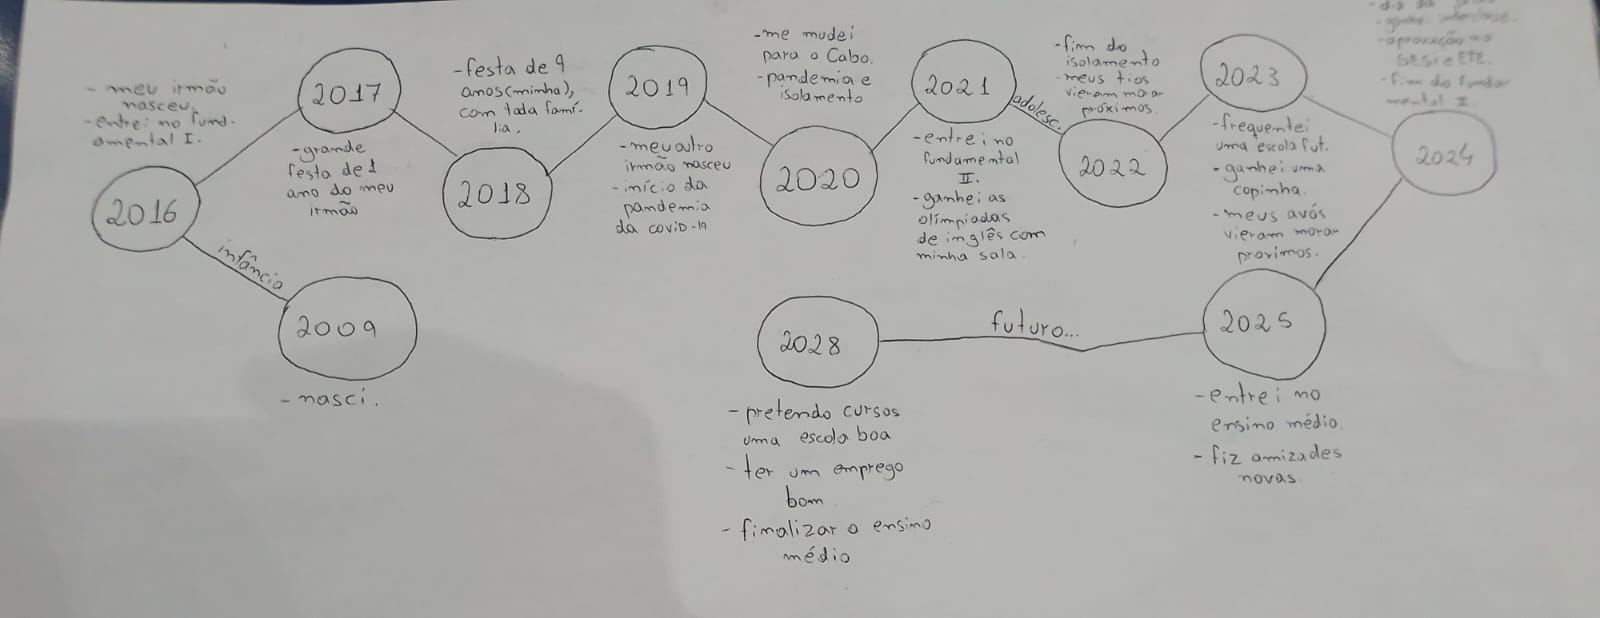 2009
- nasci.
infância
2016
- meu irmão
nasceu.
- entrei no fund-
amental I.
2017
- grande
festa de 1
ano do meu
irmão
2018
- festa de 9
anos(minha),
com toda famí-
lia.
2019
- meu outro
irmão nasceu
- início da
pandemia
da covid-19
2020
- me mudei
para o Cabo.
- pandemia e
isolamento
2021
- entrei no
fundamental
II.
- ganhei as
olímpiadas
de inglês com
minha sala.
adolesc.
2022
- fim do
isolamento
- meus tios
vieram morar
próximos.
2023
- frequentei
uma escola fut.
- ganhei uma
copinha.
- meus avós
vieram morar
proximos.
2024
interclasse.
- aprovação no
SESI e ETE.
- fim do funda-
mental II.
2025
- entrei no
ensino médio.
- fiz amizades
novas.
futuro...
2028
- pretendo cursos
uma escola boa
- ter um emprego
bom
- finalizar o ensino
médio